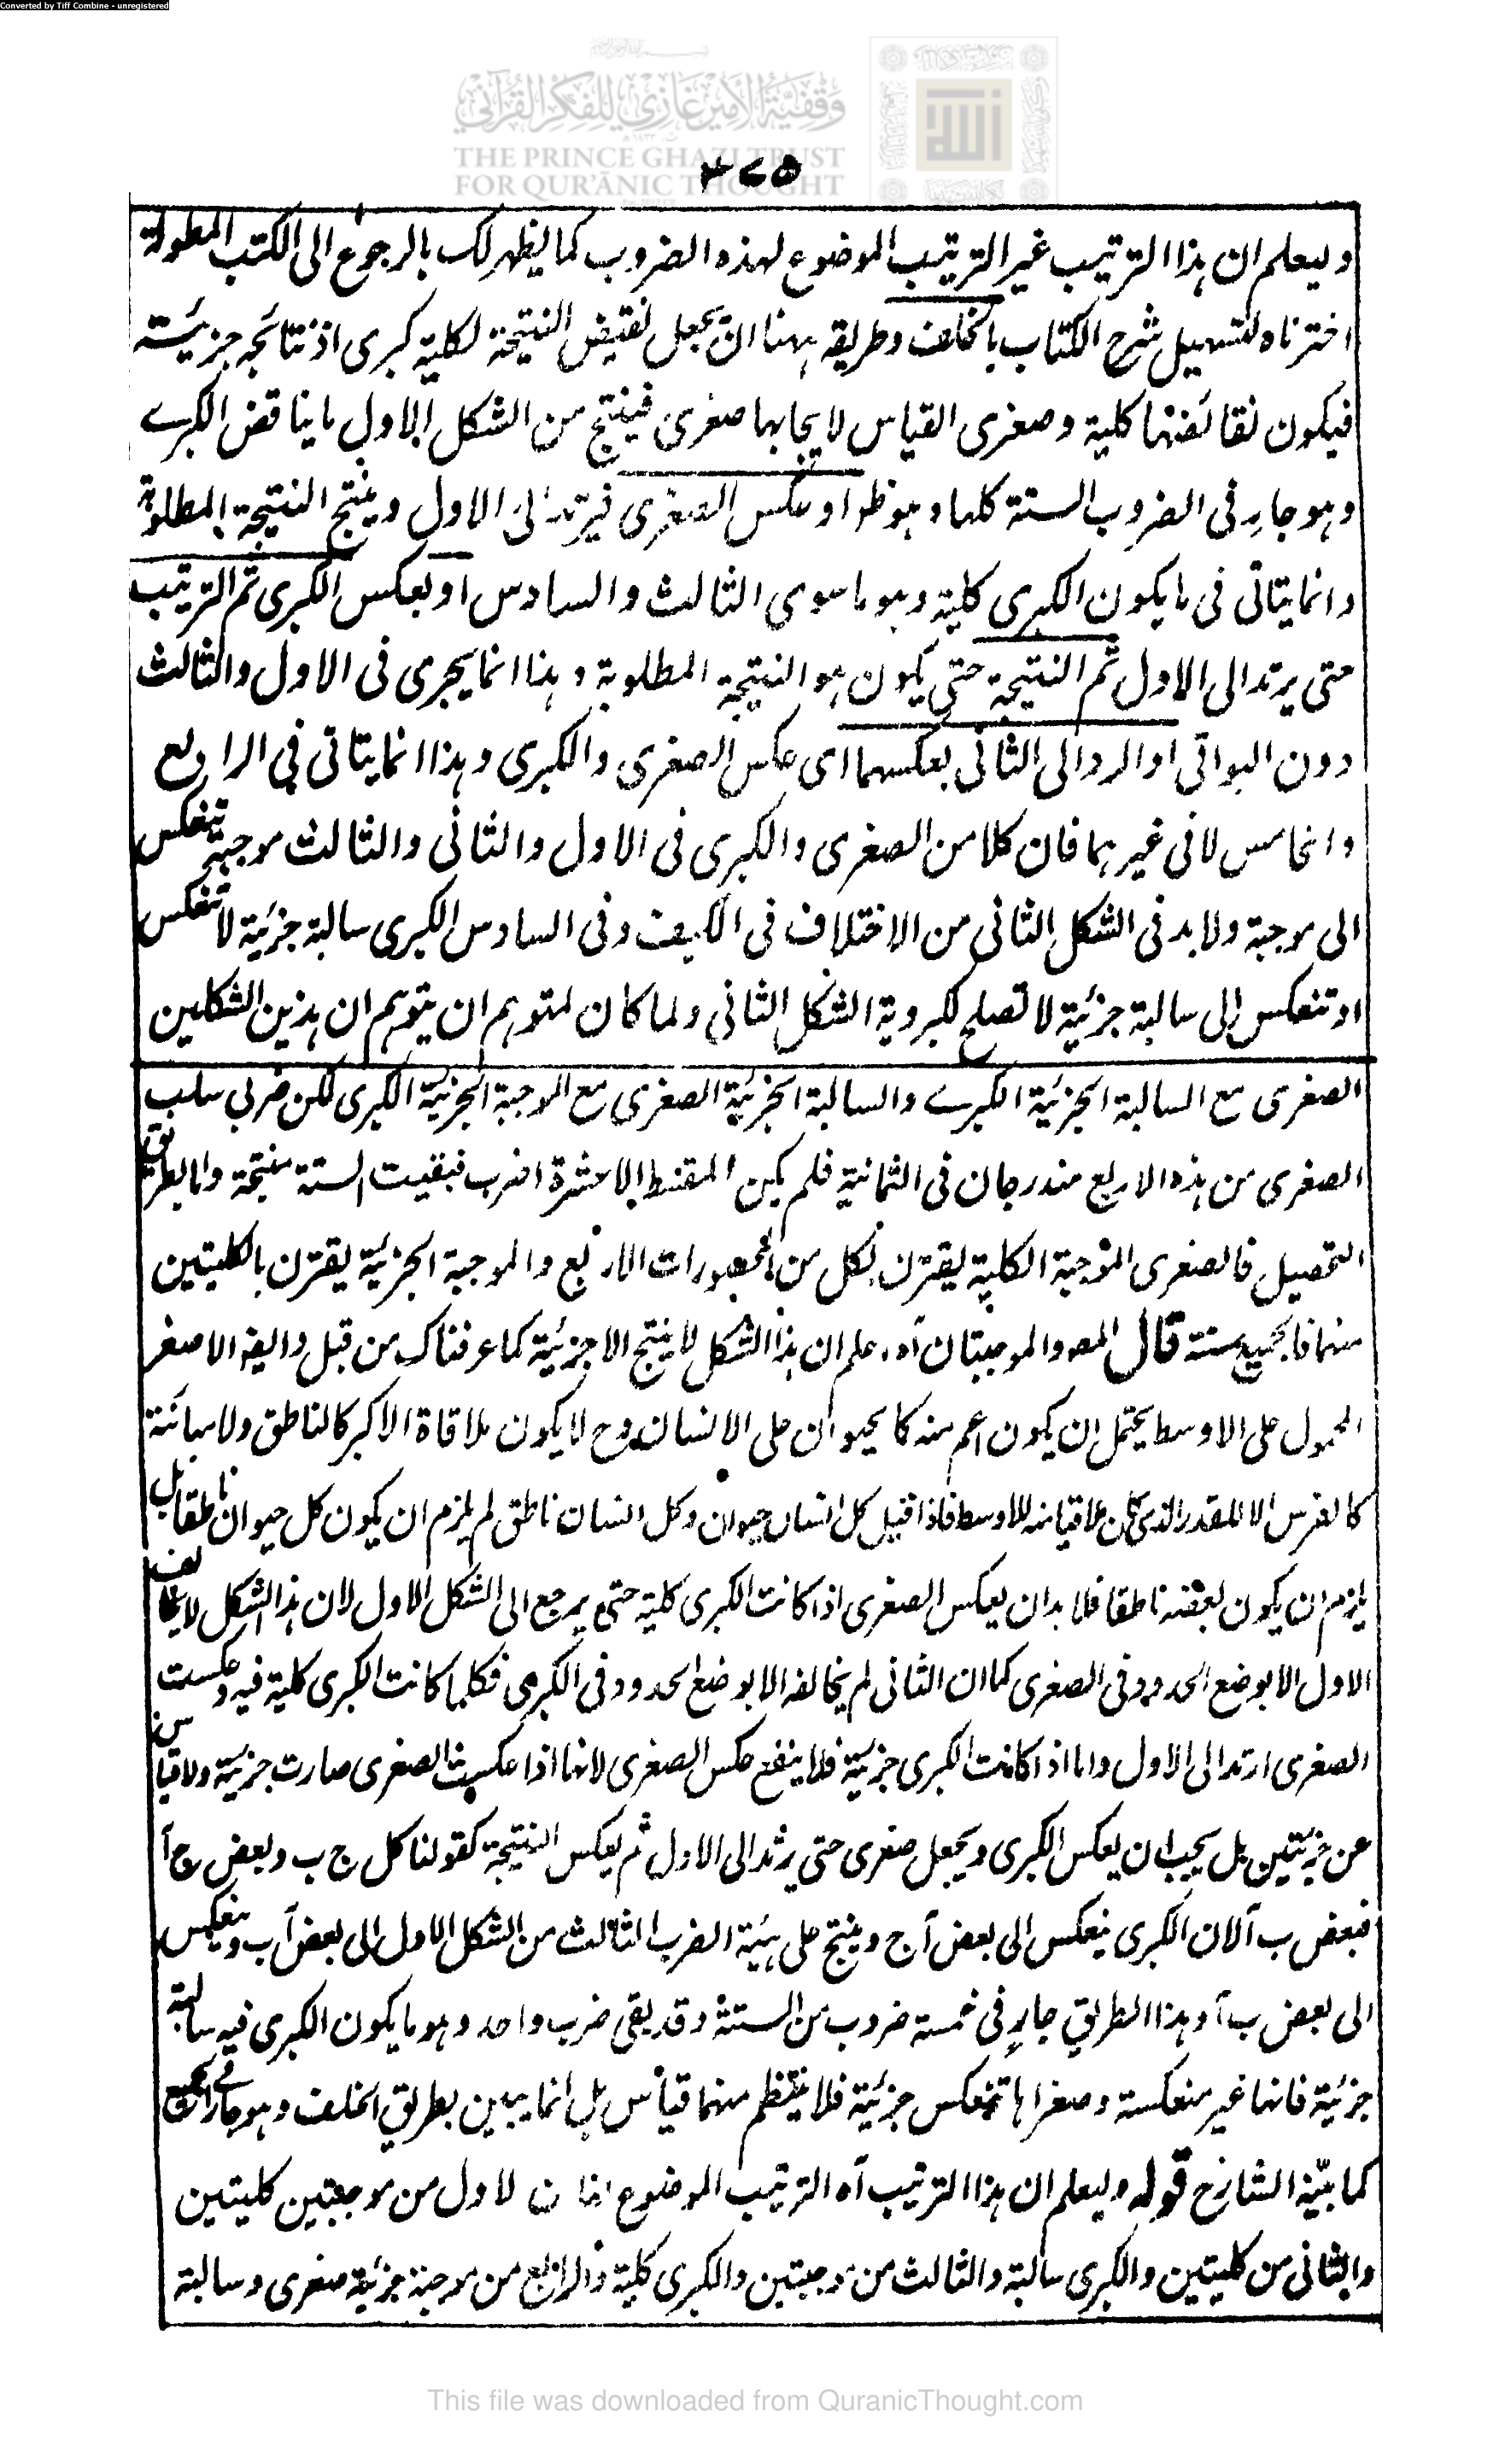 Converted by Tiff Combine - unregistered
وقفية الأمير غازي للفكر القرآني
THE PRINCE GHAZI TRUST
FOR QUR'ĀNIC THOUGHT
٣٧٥
وليعلم ان هذا الترتيب غير الترتيب الموضوع لهذه الضروب كما يظهر لك بالرجوع الى الكتب المطولة
اخترناه لتسهيل شرح الكتاب بالخلف وطريقه ههنا ان يجعل نقيض النتيجة لكليته كبرى اذ نتائجه جزئية
فيكون نقائضها كلية وصغرى القياس لايجابها صغرى فينتج من الشكل الاول ما يناقض الكبرى
وهو جار فى الضروب الستة كلها وهو ظ او عكس الصغرى فيرتد الى الاول وينتج النتيجة المطلوبة
وانما يتاتى فى ما يكون الكبرى كلية وهو ما سوى الثالث والسادس او بعكس الكبرى ثم الترتيب
حتى يرتد الى الاول ثم النتيجة حتى يكون هو النتيجة المطلوبة وهذا انما يجرى فى الاول والثالث
دون البواقى او الرد الى الثانى بعكسهما اى عكس الصغرى والكبرى وهذا انما يتاتى فى الرابع
والخامس لا فى غيرهما فان كلا من الصغرى والكبرى فى الاول والثانى والثالث موجبة تنعكس
الى موجبة ولا بد فى الشكل الثانى من الاختلاف فى الكيف وفى السادس الكبرى سالبة جزئية لا تنعكس
او تنعكس الى سالبة جزئية لا تصلح لكبروية الشكل الثانى ولما كان لمتوهم ان يتوهم ان هذين الشكلين
الصغرى مع السالبة الجزئية الكبرى والسالبة الجزئية الصغرى مع الموجبة الجزئية الكبرى لكن ضربى سلب
الصغرى من هذه الاربع مندرجان فى الثمانية فلم يكن المقنط الا عشرة اضرب فبقيت الستة منتجة واما بطريق
التحصيل فالصغرى الموجبة الكلية يقترن بكل من المحصورات الاربع والموجبة الجزئية يقترن بالكليتين
منهما فالجميع ستة قال المصـ والموجبتان آه اعلم ان هذا الشكل لا ينتج الا جزئية كما عرفناك من قبل وايضا الاصغر
المحمول على الاوسط يحتمل ان يكون اعم منه كالحيوان على الانسان وح لا يكون ملاقاة الاكبر كالناطق ولا مباينة
كالفرس الا للقدر الذى كان ملاقيا منه للاوسط فاذا قيل كل انسان حيوان وكل انسان ناطق لم يلزم ان يكون كل حيوان ناطقا بل
يلزم ان يكون بعضه ناطقا فلا بد ان يعكس الصغرى اذا كانت الكبرى كلية حتى يرجع الى الشكل الاول لان هذا الشكل لا يخالف
الاول الا بوضع الحدود فى الصغرى كما ان الثانى لم يخالفه الا بوضع الحدود فى الكبرى فكلما كانت الكبرى كلية فيه وعكست
الصغرى ارتد الى الاول واما اذا كانت الكبرى جزئية فلا ينفع عكس الصغرى لانها اذا عكست الصغرى صارت جزئية ولا قياس
عن جزئيتين بل يجب ان يعكس الكبرى ويجعل صغرى حتى يرتد الى الاول ثم يعكس النتيجة كقولنا كل ج ب وبعض ج آ
فبعض ب آ لان الكبرى ينعكس الى بعض آ ج وينتج على هيئة الضرب الثالث من الشكل الاول الى بعض آ ب وينعكس
الى بعض ب آ وهذا الطريق جار فى خمسة ضروب من الستة وقد يبقى ضرب واحد وهو ما يكون الكبرى فيه سالبة
جزئية فانها غير منعكسة وصغراها تنعكس جزئية فلا ينتظم منهما قياس بل انما يبين بطريق الخلف وهو جار فى الجميع
كما بينه الشارح قوله وليعلم ان هذا الترتيب آه الترتيب الموضوع الاول من موجبتين كليتين
والثانى من كليتين والكبرى سالبة والثالث من موجبتين والكبرى كلية والرابع من موجبة جزئية صغرى وسالبة
This file was downloaded from QuranicThought.com